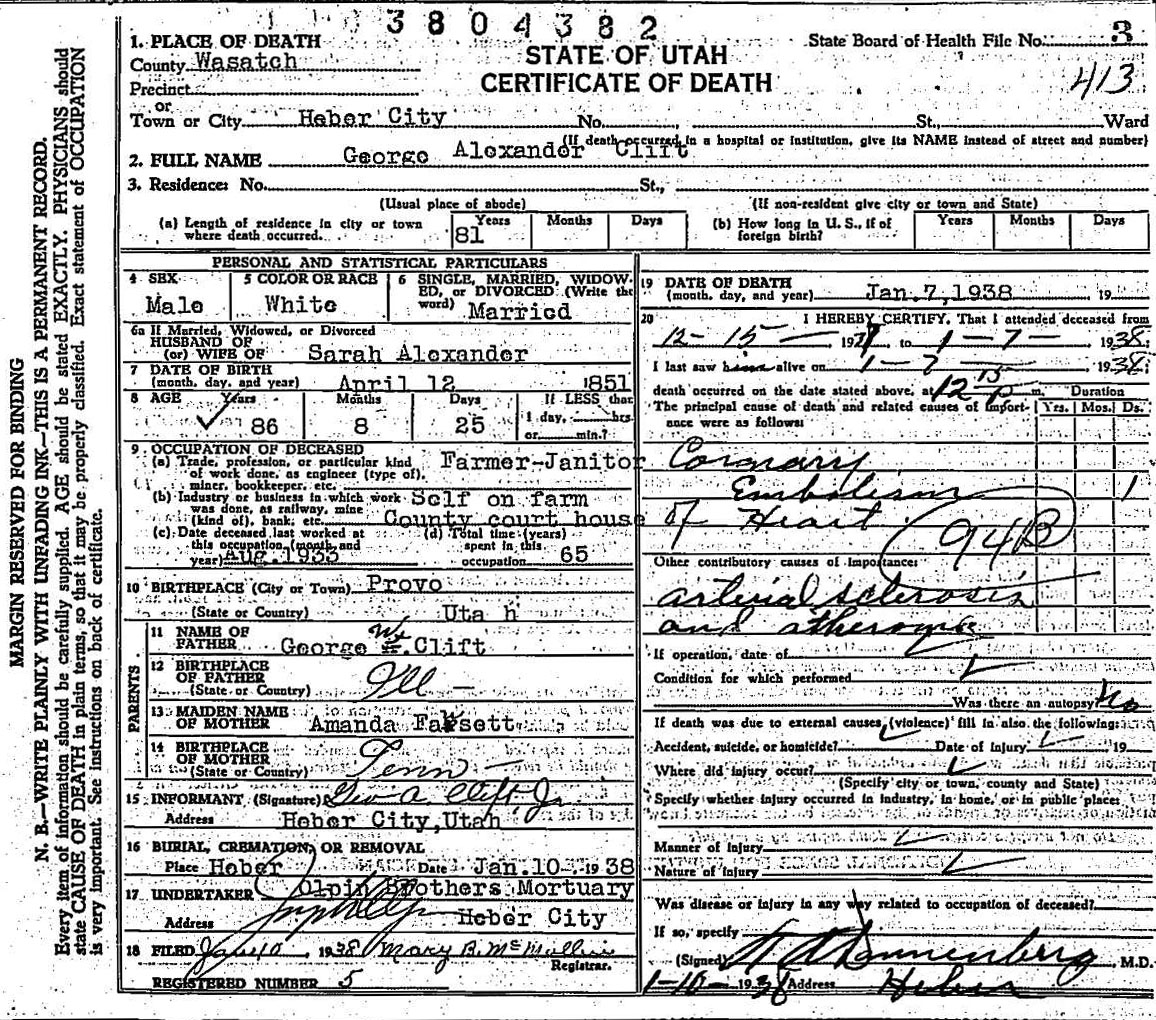 3804382
State Board of Health File No. 3
413
STATE OF UTAH
CERTIFICATE OF DEATH
1. PLACE OF DEATH
County Wasatch
Precinct
or
Town or City Heber City No. St., Ward
(If death occurred in a hospital or institution, give its NAME instead of street and number)
2. FULL NAME George Alexander Clift
3. Residence: No. St.,
(Usual place of abode) (If non-resident give city or town and State)
(a) Length of residence in city or town where death occurred. Years 81 Months Days
(b) How long in U. S., if of foreign birth? Years Months Days
PERSONAL AND STATISTICAL PARTICULARS
4 SEX Male
5 COLOR OR RACE White
6 SINGLE, MARRIED, WIDOWED, OR DIVORCED (Write the word) Married
6a If Married, Widowed, or Divorced
HUSBAND OF
(or) WIFE OF Sarah Alexander
7 DATE OF BIRTH
(month, day, and year) April 12 1851
8 AGE Years 86 Months 8 Days 25 If LESS that 1 day, hrs. or min.?
9 OCCUPATION OF DECEASED
(a) Trade, profession, or particular kind of work done, as engineer (type of), miner, bookkeeper, etc. Farmer-Janitor
(b) Industry or business in which work was done, as railway, mine (kind of), bank, etc. Self on farm
County court house
(c) Date deceased last worked at this occupation (month and year) Aug. 1933
(d) Total time (years) spent in this occupation 65
10 BIRTHPLACE (City or Town) Provo
(State or Country) Uta h
PARENTS
11 NAME OF FATHER George W. Clift
12 BIRTHPLACE OF FATHER
(State or Country) Ill
13 MAIDEN NAME OF MOTHER Amanda Fausett
14 BIRTHPLACE OF MOTHER
(State or Country) Tenn
15 INFORMANT (Signature) Geo A Clift Jr
Address Heber City, Utah
16 BURIAL, CREMATION, OR REMOVAL
Place Heber Date Jan. 10 1938
17 UNDERTAKER Olpin Brothers Mortuary
Address Heber City
18 FILED Jan 10, 1938 Mary B. McMullin
Registrar.
REGISTERED NUMBER 5
19 DATE OF DEATH
(month, day, and year) Jan. 7, 1938 19
20 I HEREBY CERTIFY, That I attended deceased from
12-15- 19 to 1-7- 1938.
I last saw him alive on 1-7 1938.
death occurred on the date stated above, at 12 15 P m. Duration
The principal cause of death and related causes of importance were as follows: Yrs. Mos. Ds.
Coronary
Embolism 1
of Heart
94B
Other contributory causes of importance:
arterial sclerosis
and atheroma
If operation, date of
Condition for which performed
Was there an autopsy No
If death was due to external causes (violence) fill in also the following:
Accident, suicide, or homicide? Date of injury 19
Where did injury occur?
(Specify city or town, county and State)
Specify whether injury occurred in industry, in home, or in public place:
Manner of injury
Nature of injury
Was disease or injury in any way related to occupation of deceased?
If so, specify
(Signed) Dannenberg M.D.
1-10- 1938 Address Heber
MARGIN RESERVED FOR BINDING
N. B.—WRITE PLAINLY WITH UNFADING INK—THIS IS A PERMANENT RECORD.
Every item of information should be carefully supplied. AGE should be stated EXACTLY. PHYSICIANS should
state CAUSE OF DEATH in plain terms, so that it may be properly classified. Exact statement of OCCUPATION
is very important. See instructions on back of certificate.